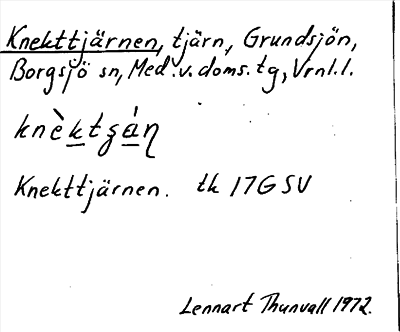 Knekttjärnen, tjärn, Grundsjön,
Borgsjö sn, Med.v.doms.tg, Vrnl.l.
knèktʒán
Knekttjärnen. tk 17G SV
Lennart Thunvall 1972.